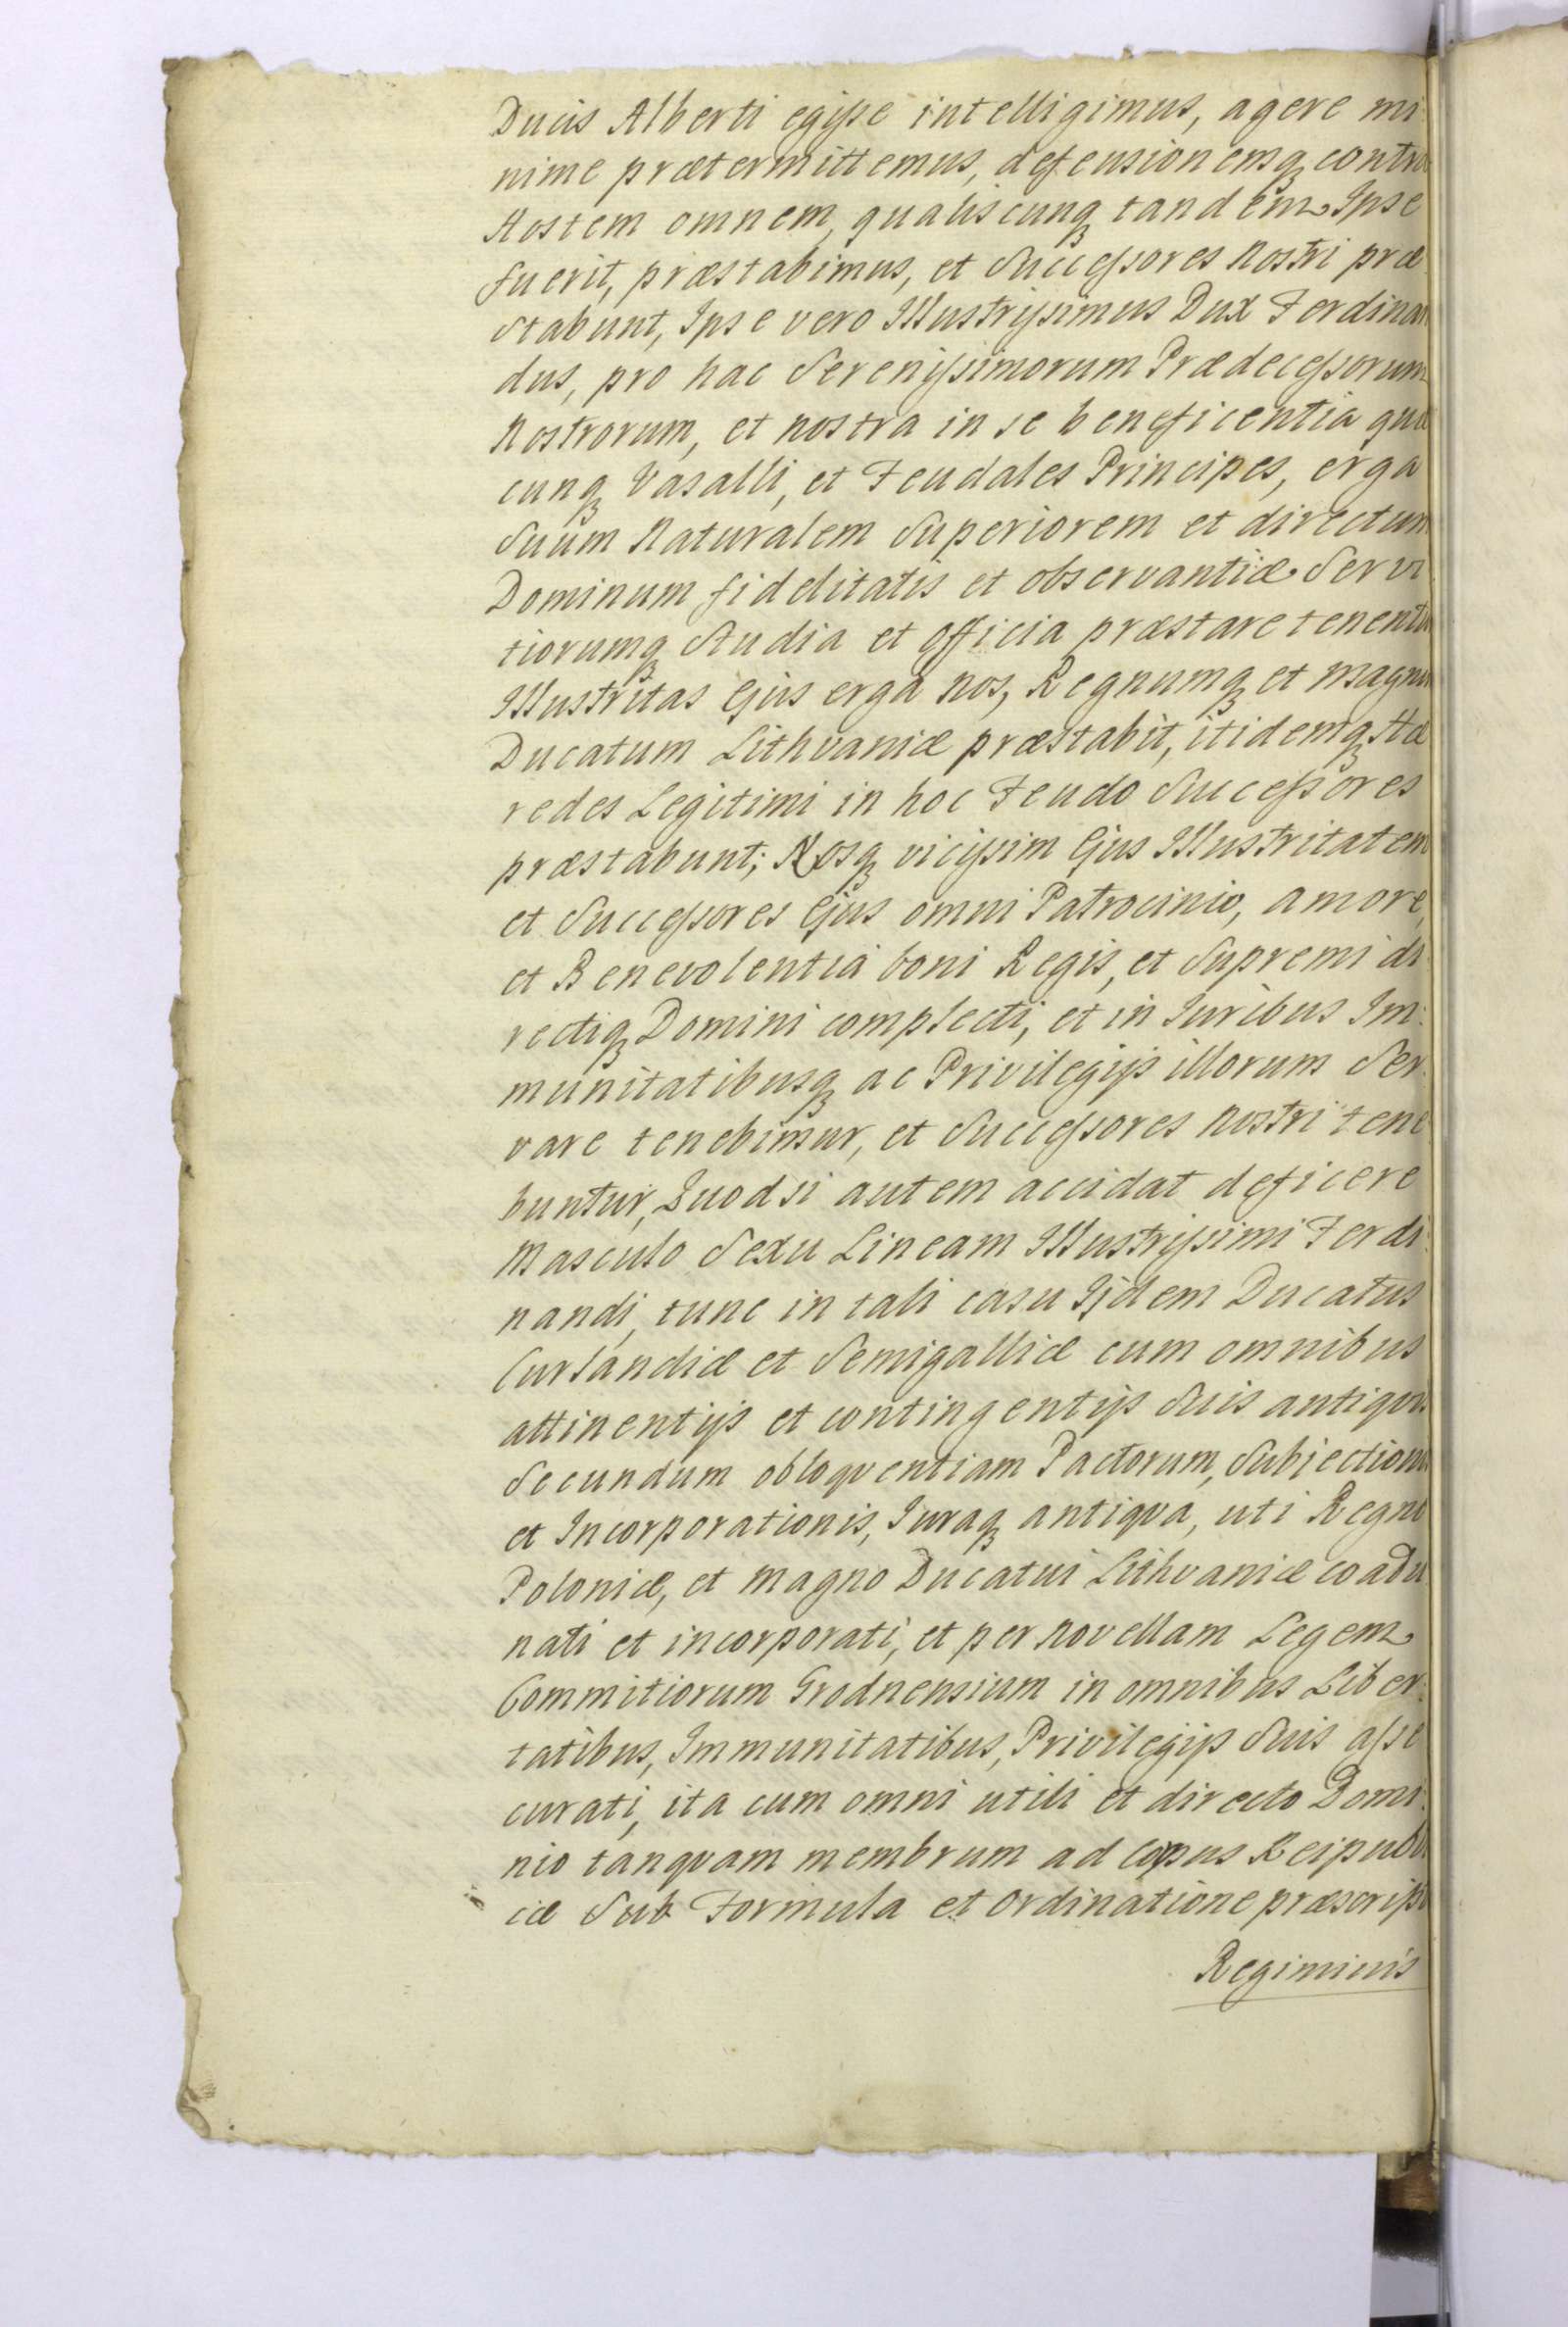 Ducis Alberti egisse intelligimus, agere mi
nime prætermittemus, defensionemq; contra
Hostem omnem, qualiscunq; tandem Ipse
fuerit, præstabimus, et Successores Nostri præ
stabunt, Ipse vero Illustrissimus Dux Ferdinan
dus, pro hac Serenissimorum Prædecessorum
Nostrorum, et nostra in se beneficentia quæ
cunq; Vasalli, et Feudales Principes, erga
Suum Naturalem Superiorem et directum
Dominum fidelitatis et observantiæ Servi
tiorumq; Studia et Officia præstare tenentur
Illustritas Ejus erga Nos, Regnumq; et Magnum
Ducatum Lithvaniæ præstabit, itidemq; Hæ
redes Legitimi in hoc Feudo Successores
præstabunt; Nosq; vicissim Ejus Illustritatem
et Successores Ejus omni Patrocinio, amore,
et Benevolentia boni Regis, et Supremi di
rectiq; Domini complecti, et in Juribus Im:
munitatibusq; ac Privilegijs illorum Ser
vare tenebimur, et Successores Nostri tene
buntur, Quodsi autem accidat deficere
Masculo Sexu Lineam Illustrissimi Ferdi:
nandi, tunc in tali casu Ijdem Ducatus
Curlandiæ et Semigalliæ cum omnibus
attinentijs et contingentijs Suis antiqvis
Secundum obloqventiam Pactorum, Subjectionis
et Incorporationis, Juraq; antiqva, uti Regno
Poloniæ, et Magno Ducatui Lithvaniæ coadu
nati et incorporati, et per Novellam Legem
Commitiorum Grodnensium in omnibus Liber:
tatibus, Immunitatibus, Privilegijs Suis asse
curati, ita cum omni utili et directo Domi:
nio tanqvam membrum ad Copus Reipubli
cæ Sub Formula et Ordinatione præscripti
Regiminis